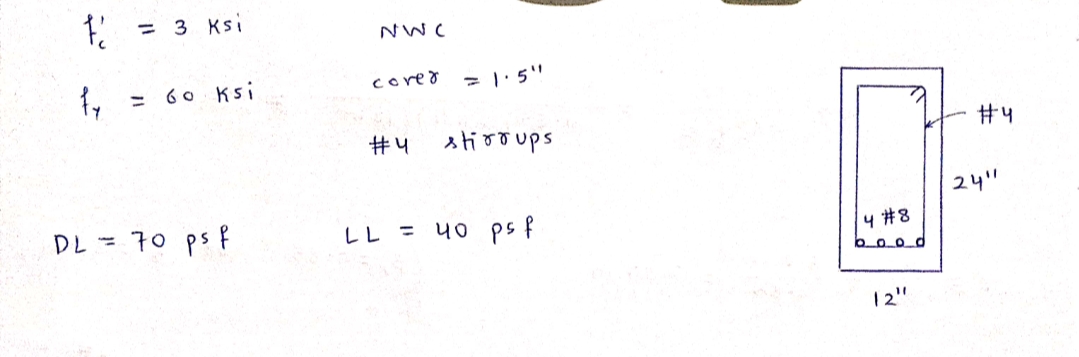 f'c = 3 Ksi
NWC
fy = 60 Ksi
cover = 1.5"
#4 stirrups
DL = 70 psf
LL = 40 psf
#4
24"
4 #8
12"